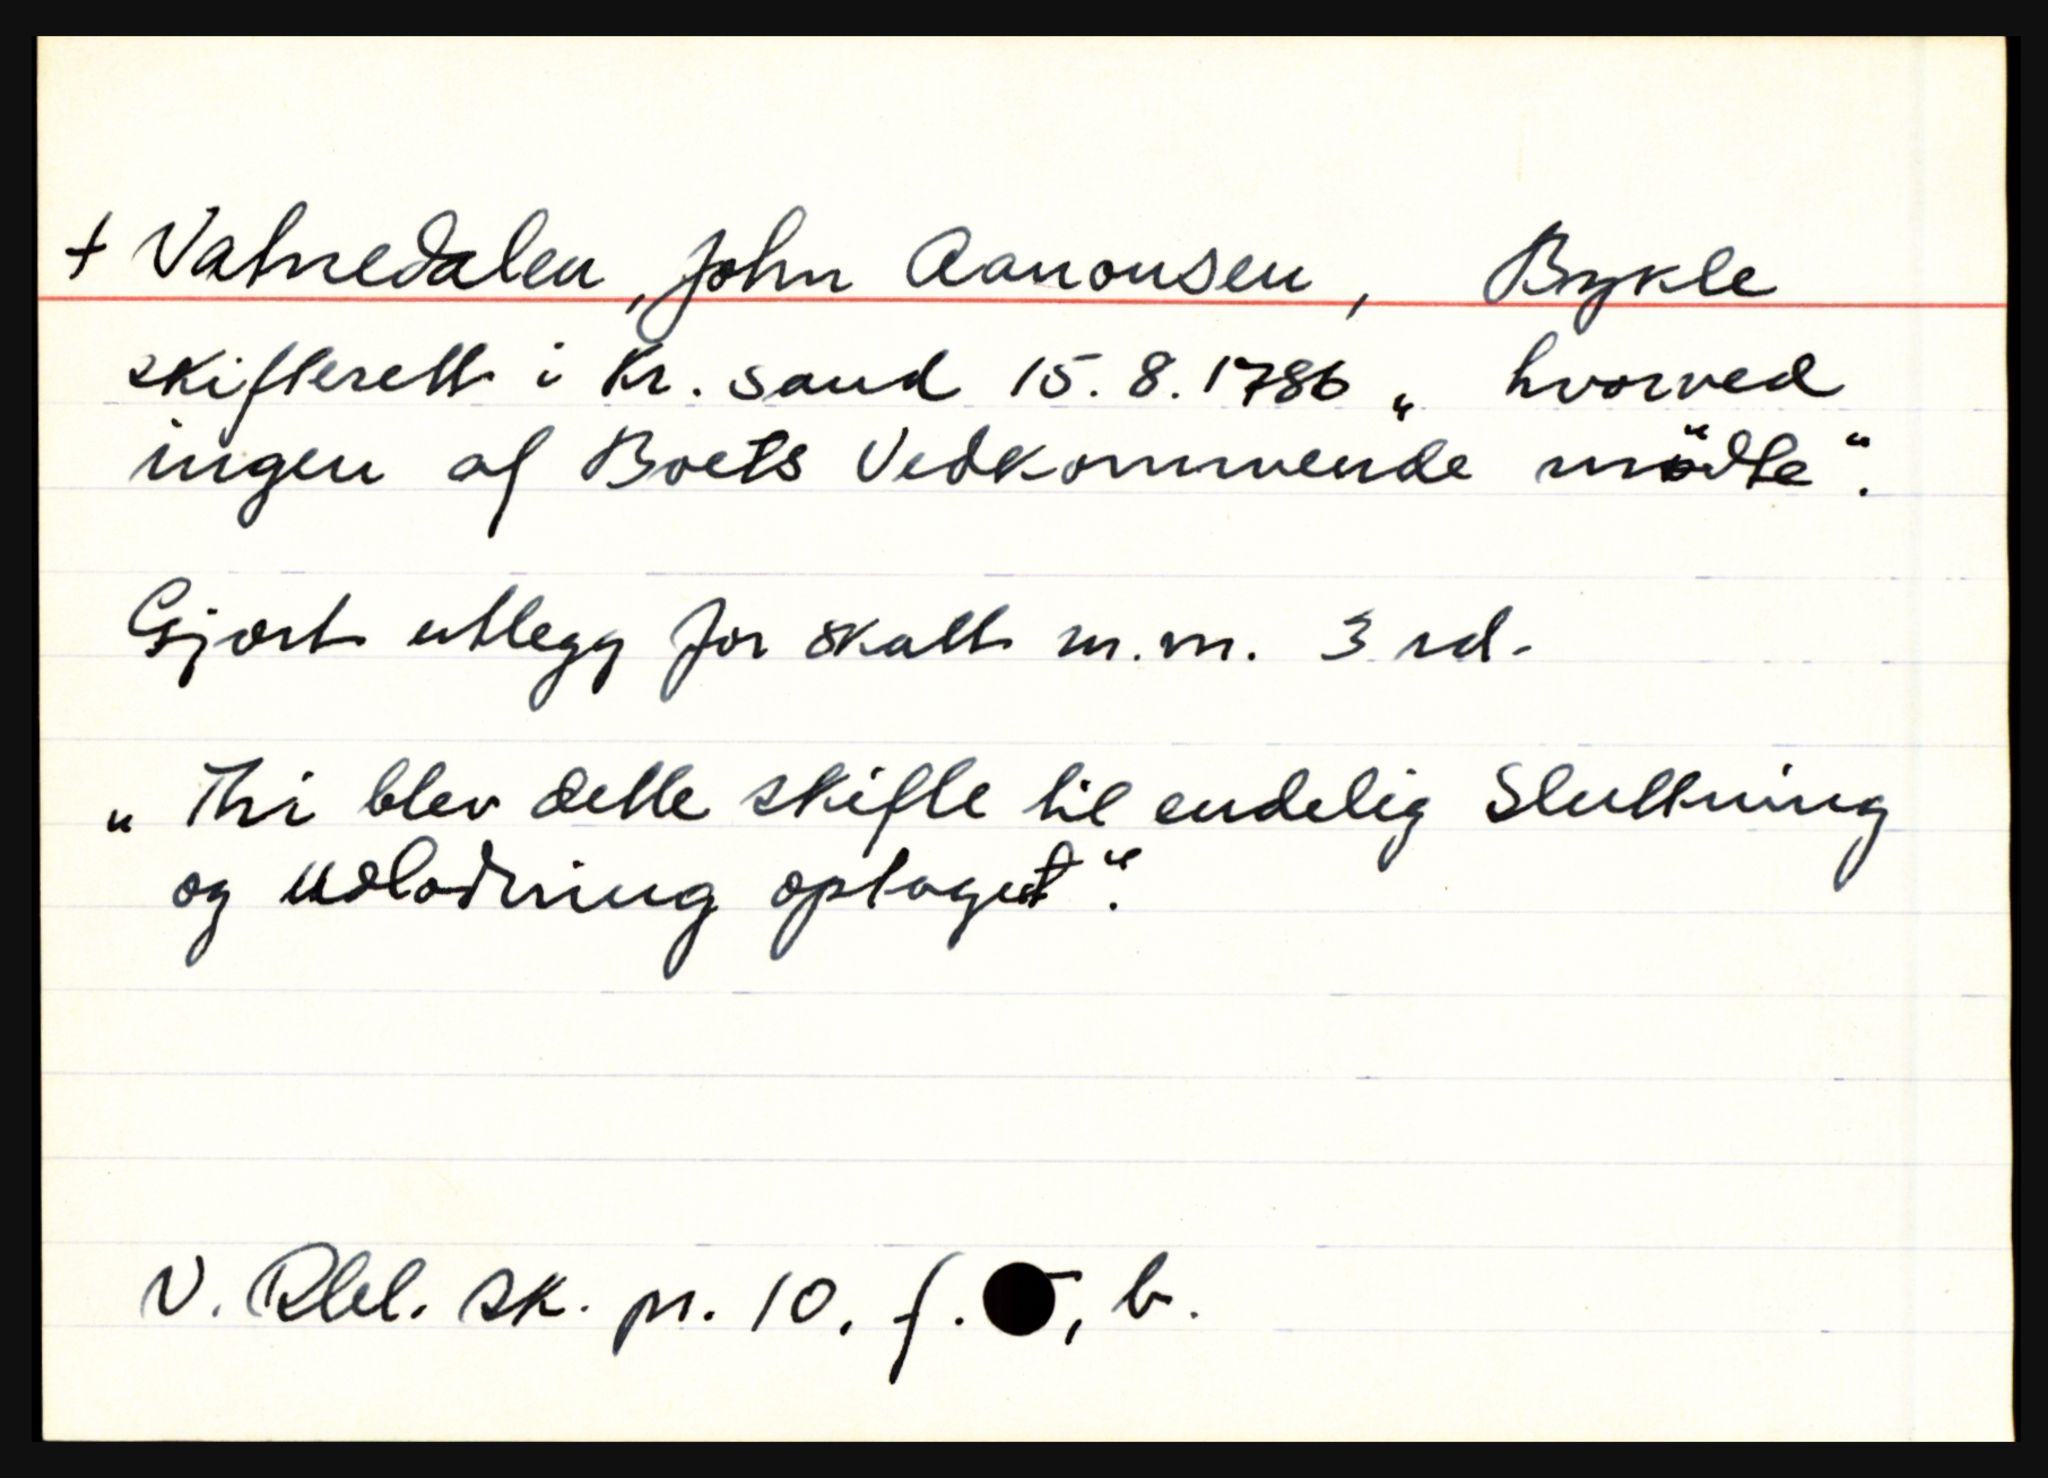 + Vatnedalen, John Aanonsen, Bykle
skifterett i Kr. sand 15.8.1786 „ hvorved
ingen af Boets Vedkommende mödte“.
Gjort utlegg for skatt m.m. 3 rd.
„ Thi blev dette skifte til endelig Sluttning
og Udlodning optaget“.
V. Rbl. sk. pr. 10, f. , b.